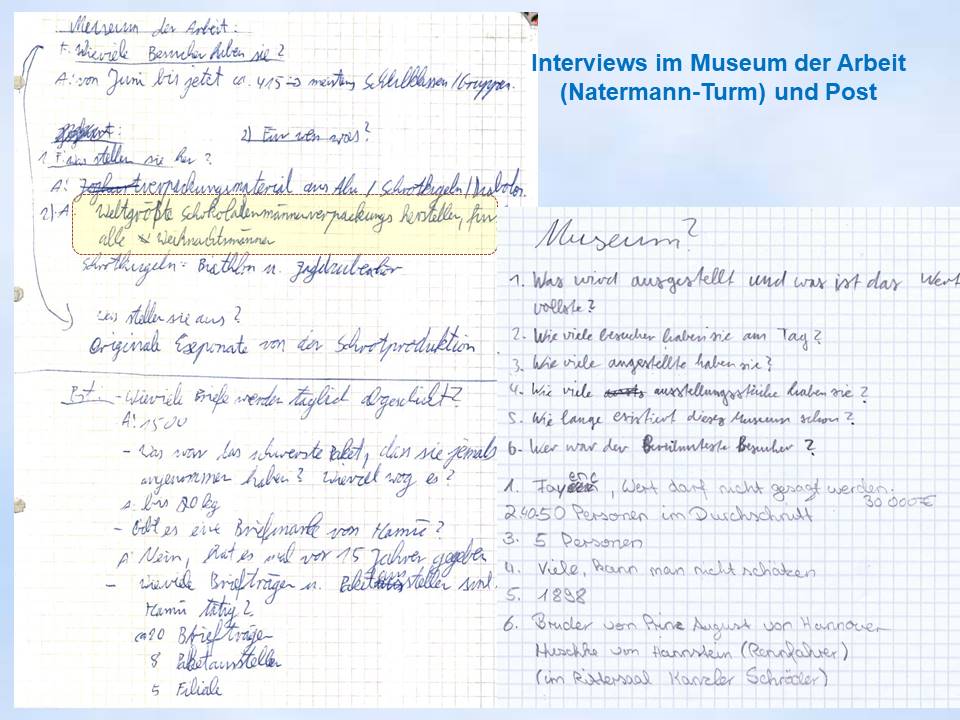 Interviews im Museum der Arbeit
(Natermann-Turm) und Post
Museum der Arbeit:
F: Wieviele Besucher haben sie?
A: von Juni bis jetzt ca. 415 → meistens Schulklassen/Gruppen.
2) Für wen was?
1. F: was stellen sie her?
A: verpackungsmaterial aus Alu / Schrotkugeln / Diabolos
2) A Weltgrößte Schokoladenmännerverpackungs hersteller, für
alle Weihnachtsmänner
Schrotkugeln = Biathlon u. Jagdzubehör
was stellen sie aus?
Originale Exponate von der Schrotproduktion
- Wieviele Briefe werden täglich abgeschickt?
A: 1500
- Was war das schwerste Paket, das sie jemals
angenommen haben? Wieviel wog es?
A. bis 20 kg
- Gibt es eine Briefmarke von Hamü?
A: Nein, hat es mal vor 15 Jahren gegeben
- Wieviele Briefträger u. sind.
Hamü tätig?
ca 20 Briefträger
8 Paketaussteller
5 Filiale
Museum?
1. Was wird ausgestellt und was ist das Wert
vollste?
2. Wie viele besucher haben sie am Tag?
3. Wie viele angestellte haben sie?
4. Wie viele ausstellungsstücke haben sie?
5. Wie lange existiert dieses Museum schon?
6. Wer war der Berühmteste Besucher?
1. Fayence, Wert darf nicht gesagt werden.
30 000€
2 40-50 Personen im Durchschnitt
3. 5 Personen
4. Viele, kann man nicht schätzen
5. 1898
6. Bruder von Prinz August von Hannover
Huschke von Hannstein (Rennfahrer)
(im Rittersaal Kanzler Schröder)